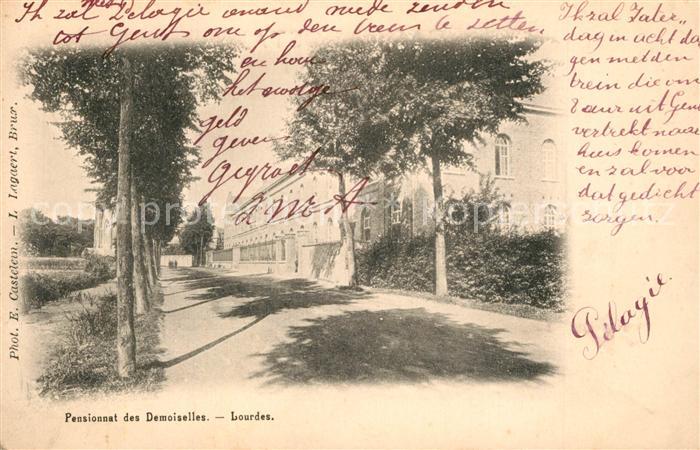 Ik zal Pelagie iemand mede zenden
tot Gent om op den trein te zetten
en hour
het overige
geld
geven
Gegroet
Ik zal Zater-
dag in acht da
gen met den
trein die om
uur uit Gent
vertrekt naar
huis komen
en zal voor
dat gedicht
zorgen.
Pelagie
Phot. E. Castelein. — L. Lagaert, Brux.
Pensionnat des Demoiselles. — Lourdes.